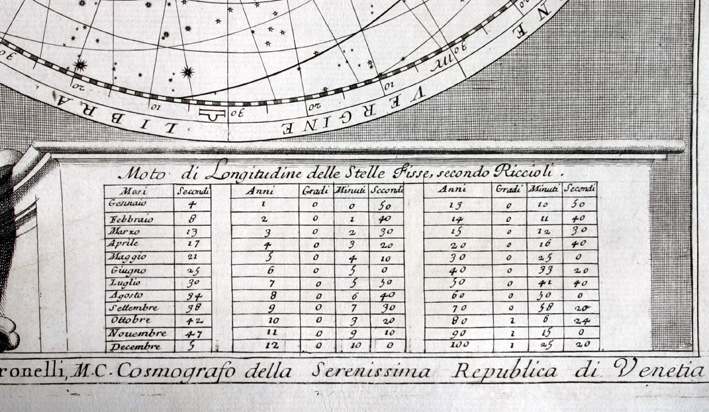 30 20 10 30 20 10 30
LIBRA VERGINE NE
Moto di Longitudine delle Stelle Fisse, secondo Riccioli.
Mesi Secondi Anni Gradi Minuti Secondi Anni Gradi Minuti Secondi
Gennaio 4 1 0 0 50 13 0 10 50
Febbraio 8 2 0 1 40 14 0 11 40
Marzo 13 3 0 2 30 15 0 12 30
Aprile 17 4 0 3 20 20 0 16 40
Maggio 21 5 0 4 10 30 0 25 0
Giugno 25 6 0 5 0 40 0 33 20
Luglio 30 7 0 5 50 50 0 41 40
Agosto 34 8 0 6 40 60 0 50 0
Settembre 38 9 0 7 30 70 0 58 20
Ottobre 42 10 0 8 20 80 1 6 24
Nouembre 47 11 0 9 10 90 1 15 0
Decembre 5 12 0 10 0 100 1 25 20
ronelli, M.C. Cosmografo della Serenissima Republica di Venetia